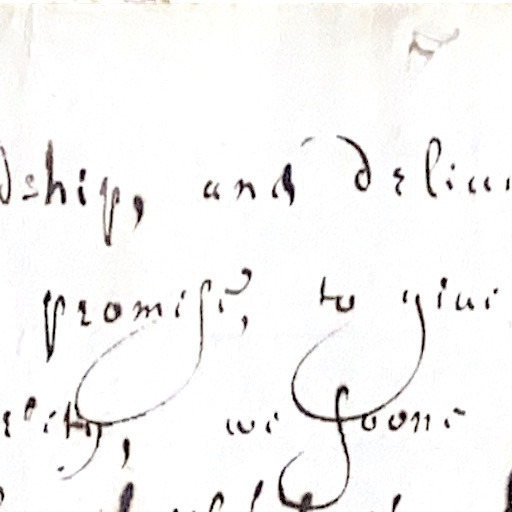 dship, and deliue
promise, to giue
we soone